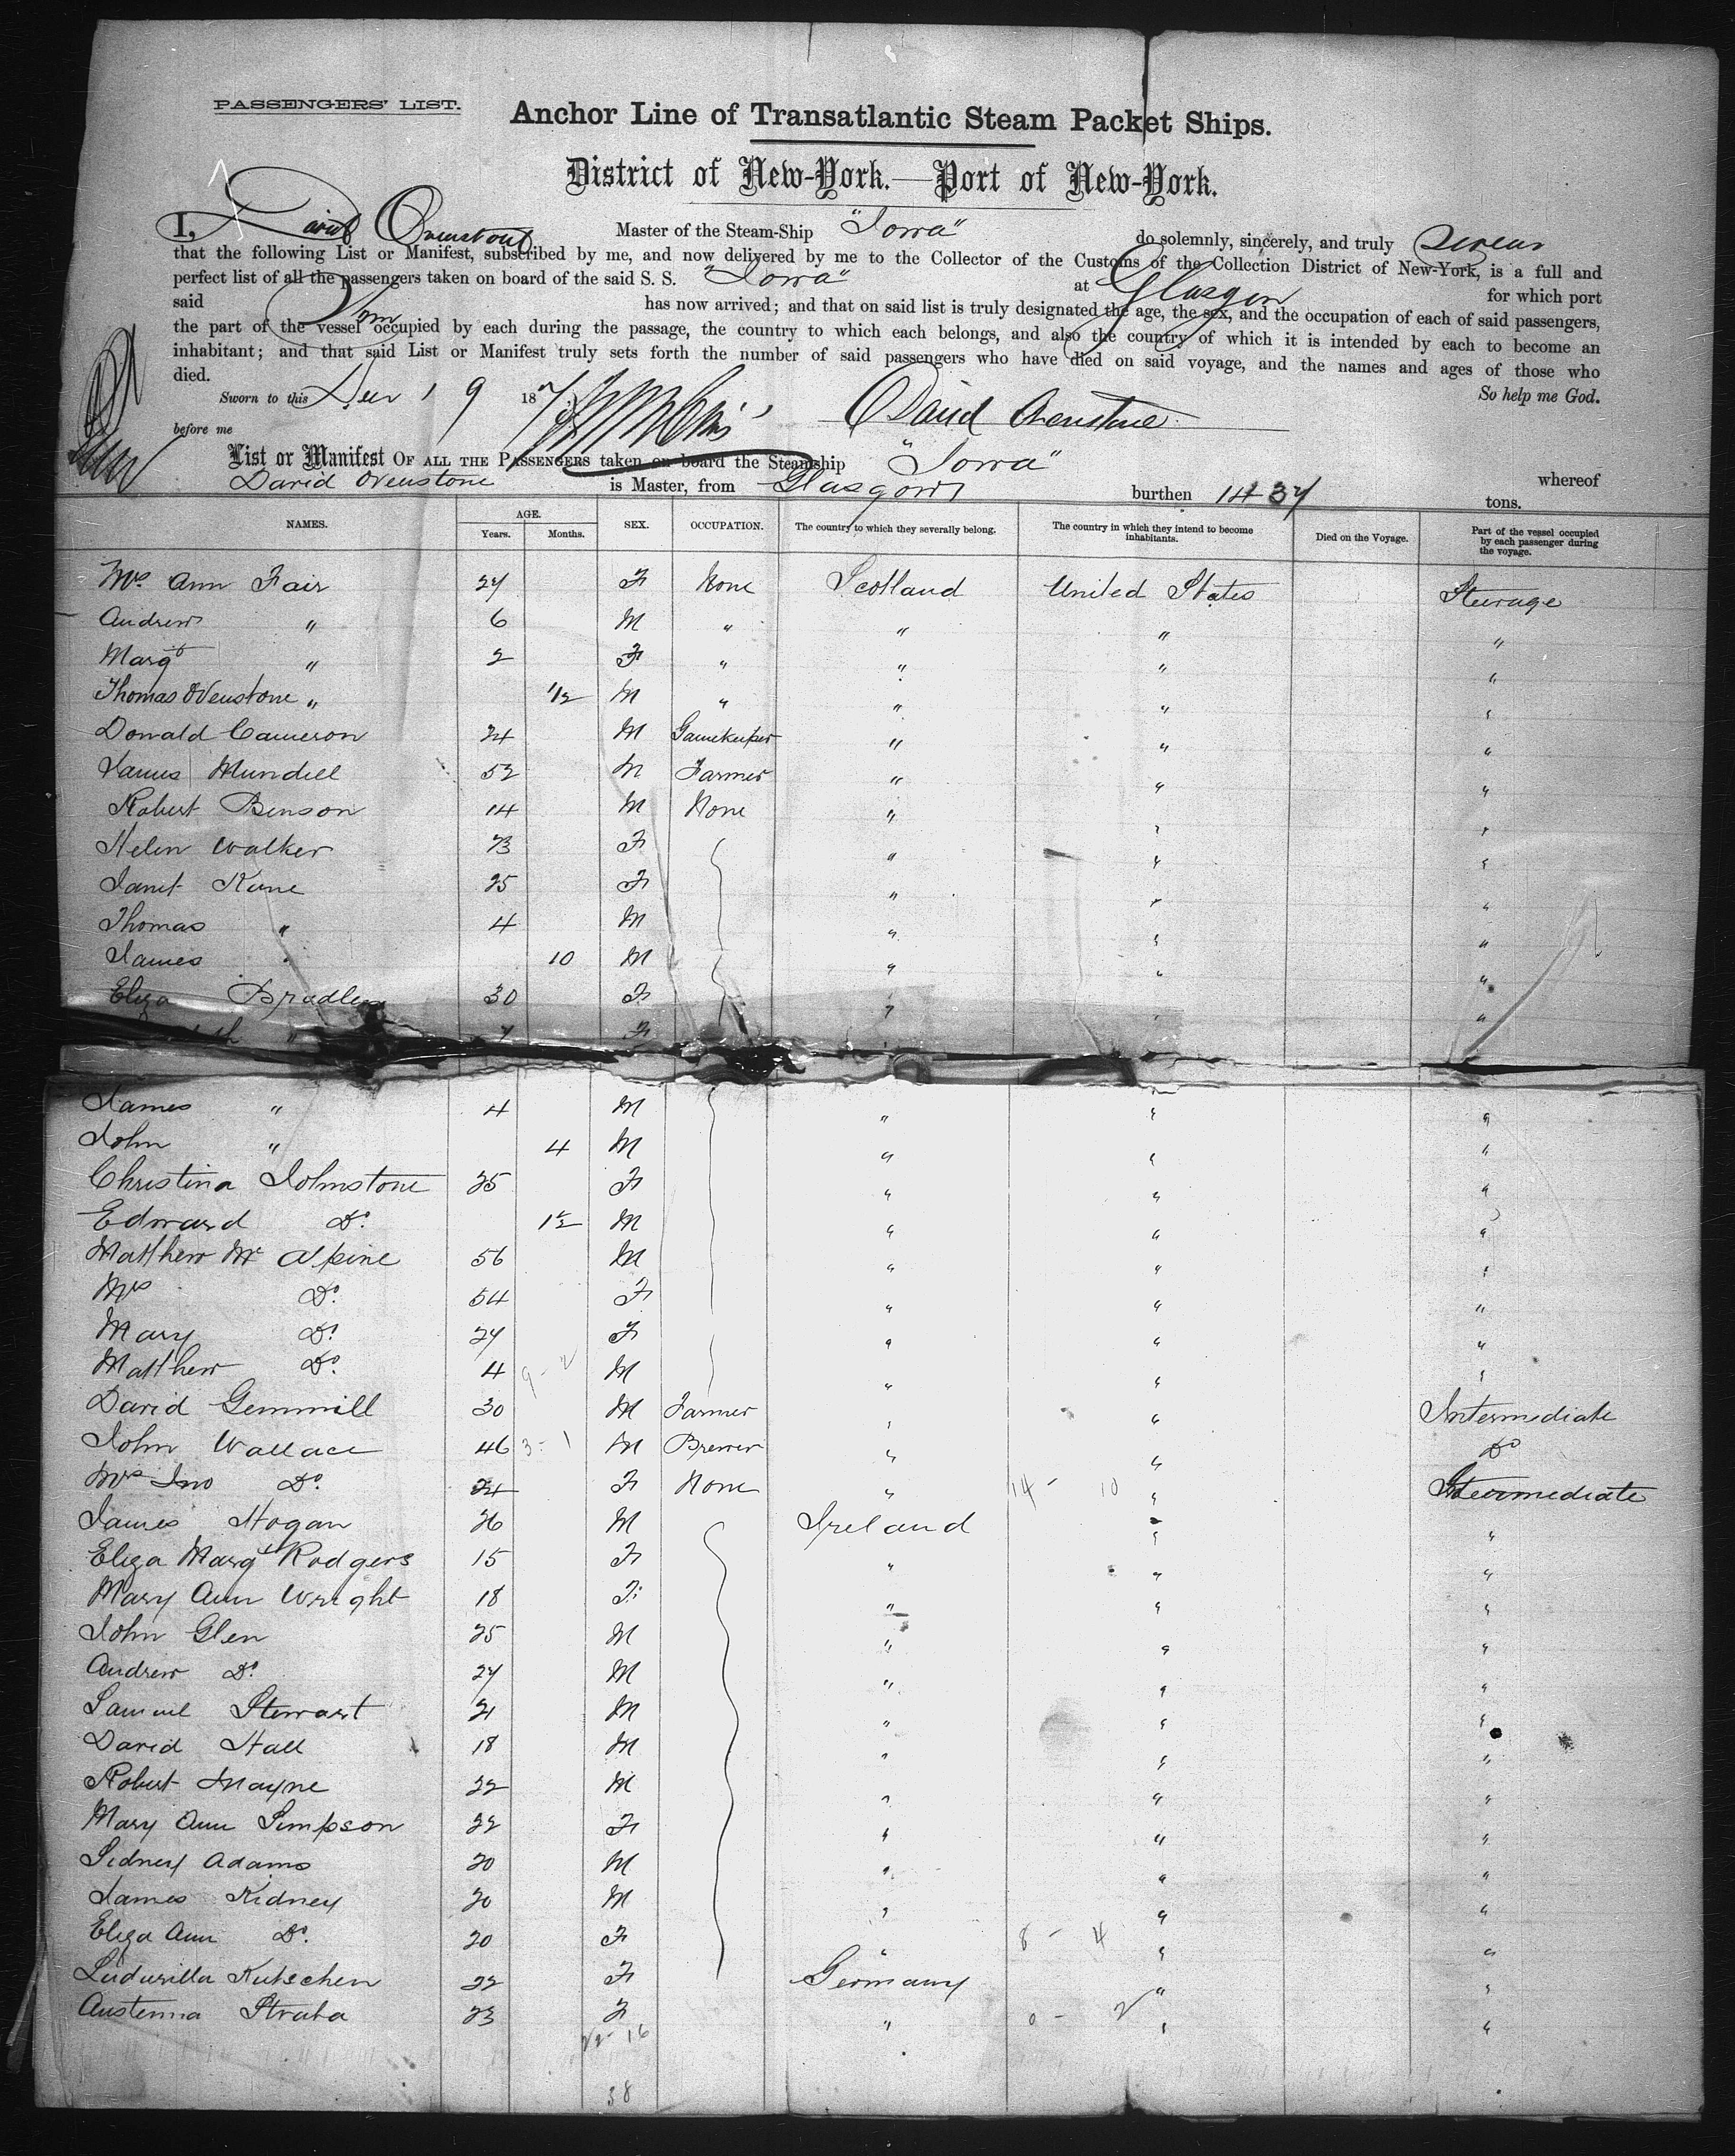 PASSENGERS' LIST.
Anchor Line of Transatlantic Steam Packet Ships.
District of New-York.—Port of New-York.
I, David Ovenstone Master of the Steam-Ship "Iowa" do solemnly, sincerely, and truly swear
that the following List or Manifest, subscribed by me, and now delivered by me to the Collector of the Customs of the Collection District of New-York, is a full and
perfect list of all the passengers taken on board of the said S. S. "Iowa" at Glasgow for which port
said from has now arrived; and that on said list is truly designated the age, the sex, and the occupation of each of said passengers,
the part of the vessel occupied by each during the passage, the country to which each belongs, and also the country of which it is intended by each to become an
inhabitant; and that said List or Manifest truly sets forth the number of said passengers who have died on said voyage, and the names and ages of those who
died. So help me God.
Sworn to this 9 187
before me David Ovenstone
List or Manifest OF ALL THE PASSENGERS taken on board the Steamship "Iowa" whereof
David Ovenstone is Master, from Glasgow burthen 1437 tons.
NAMES. AGE. Years. Months. SEX. OCCUPATION. The country to which they severally belong. The country in which they intend to become inhabitants. Died on the Voyage. Part of the vessel occupied by each passenger during the voyage.
Mrs Ann Fair 27 F None Scotland United States Steerage
Andrew " 6 M " " " "
Margt " 2 F " " " "
Thomas Ovenstone " 1/2 M " " " "
Donald Cameron 24 M Gamekeeper " " "
James Mundell 52 M Farmer " " "
Robert Benson 14 M None " " "
Helen Walker 23 F " " "
Janet Kane 25 F " " "
Thomas " 4 M " " "
James " 10 M " " "
Eliza Bradley 30 F " " "
" 7 F
James " 4 M " " "
John " 4 M " " "
Christina Johnstone 25 F " " "
Edward Do. 1 1/2 M " " "
Matthew Mc Alpine 56 M " " "
Mrs Do. 54 F " " "
Mary Do. 27 F " " "
Matthew Do. 4 9 - 2 M " " "
David Gemmill 30 M Farmer " " Intermediate
John Wallace 46 3 - 1 M Brewer " " Do
Mrs Jno Do. 24 F None " 14 - 10 " Intermediate
James Hogan 26 M Ireland " "
Eliza Margt Rodgers 15 F " " "
Mary Ann Wright 18 F " " "
John Glen 25 M " " "
Andrew Do. 27 M " " "
Samuel Stewart 21 M " " "
David Hall 18 M " " "
Robert Mayne 22 M " " "
Mary Ann Simpson 22 F " " "
Sidney Adams 20 M " " "
James Kidney 20 M " " "
Eliza Ann Do. 20 F " 8 - 4 " "
Ludusilla Kutschen 22 F Germany " "
Austenna Strata 23 F " 0 - 2 " "
22 - 16
38